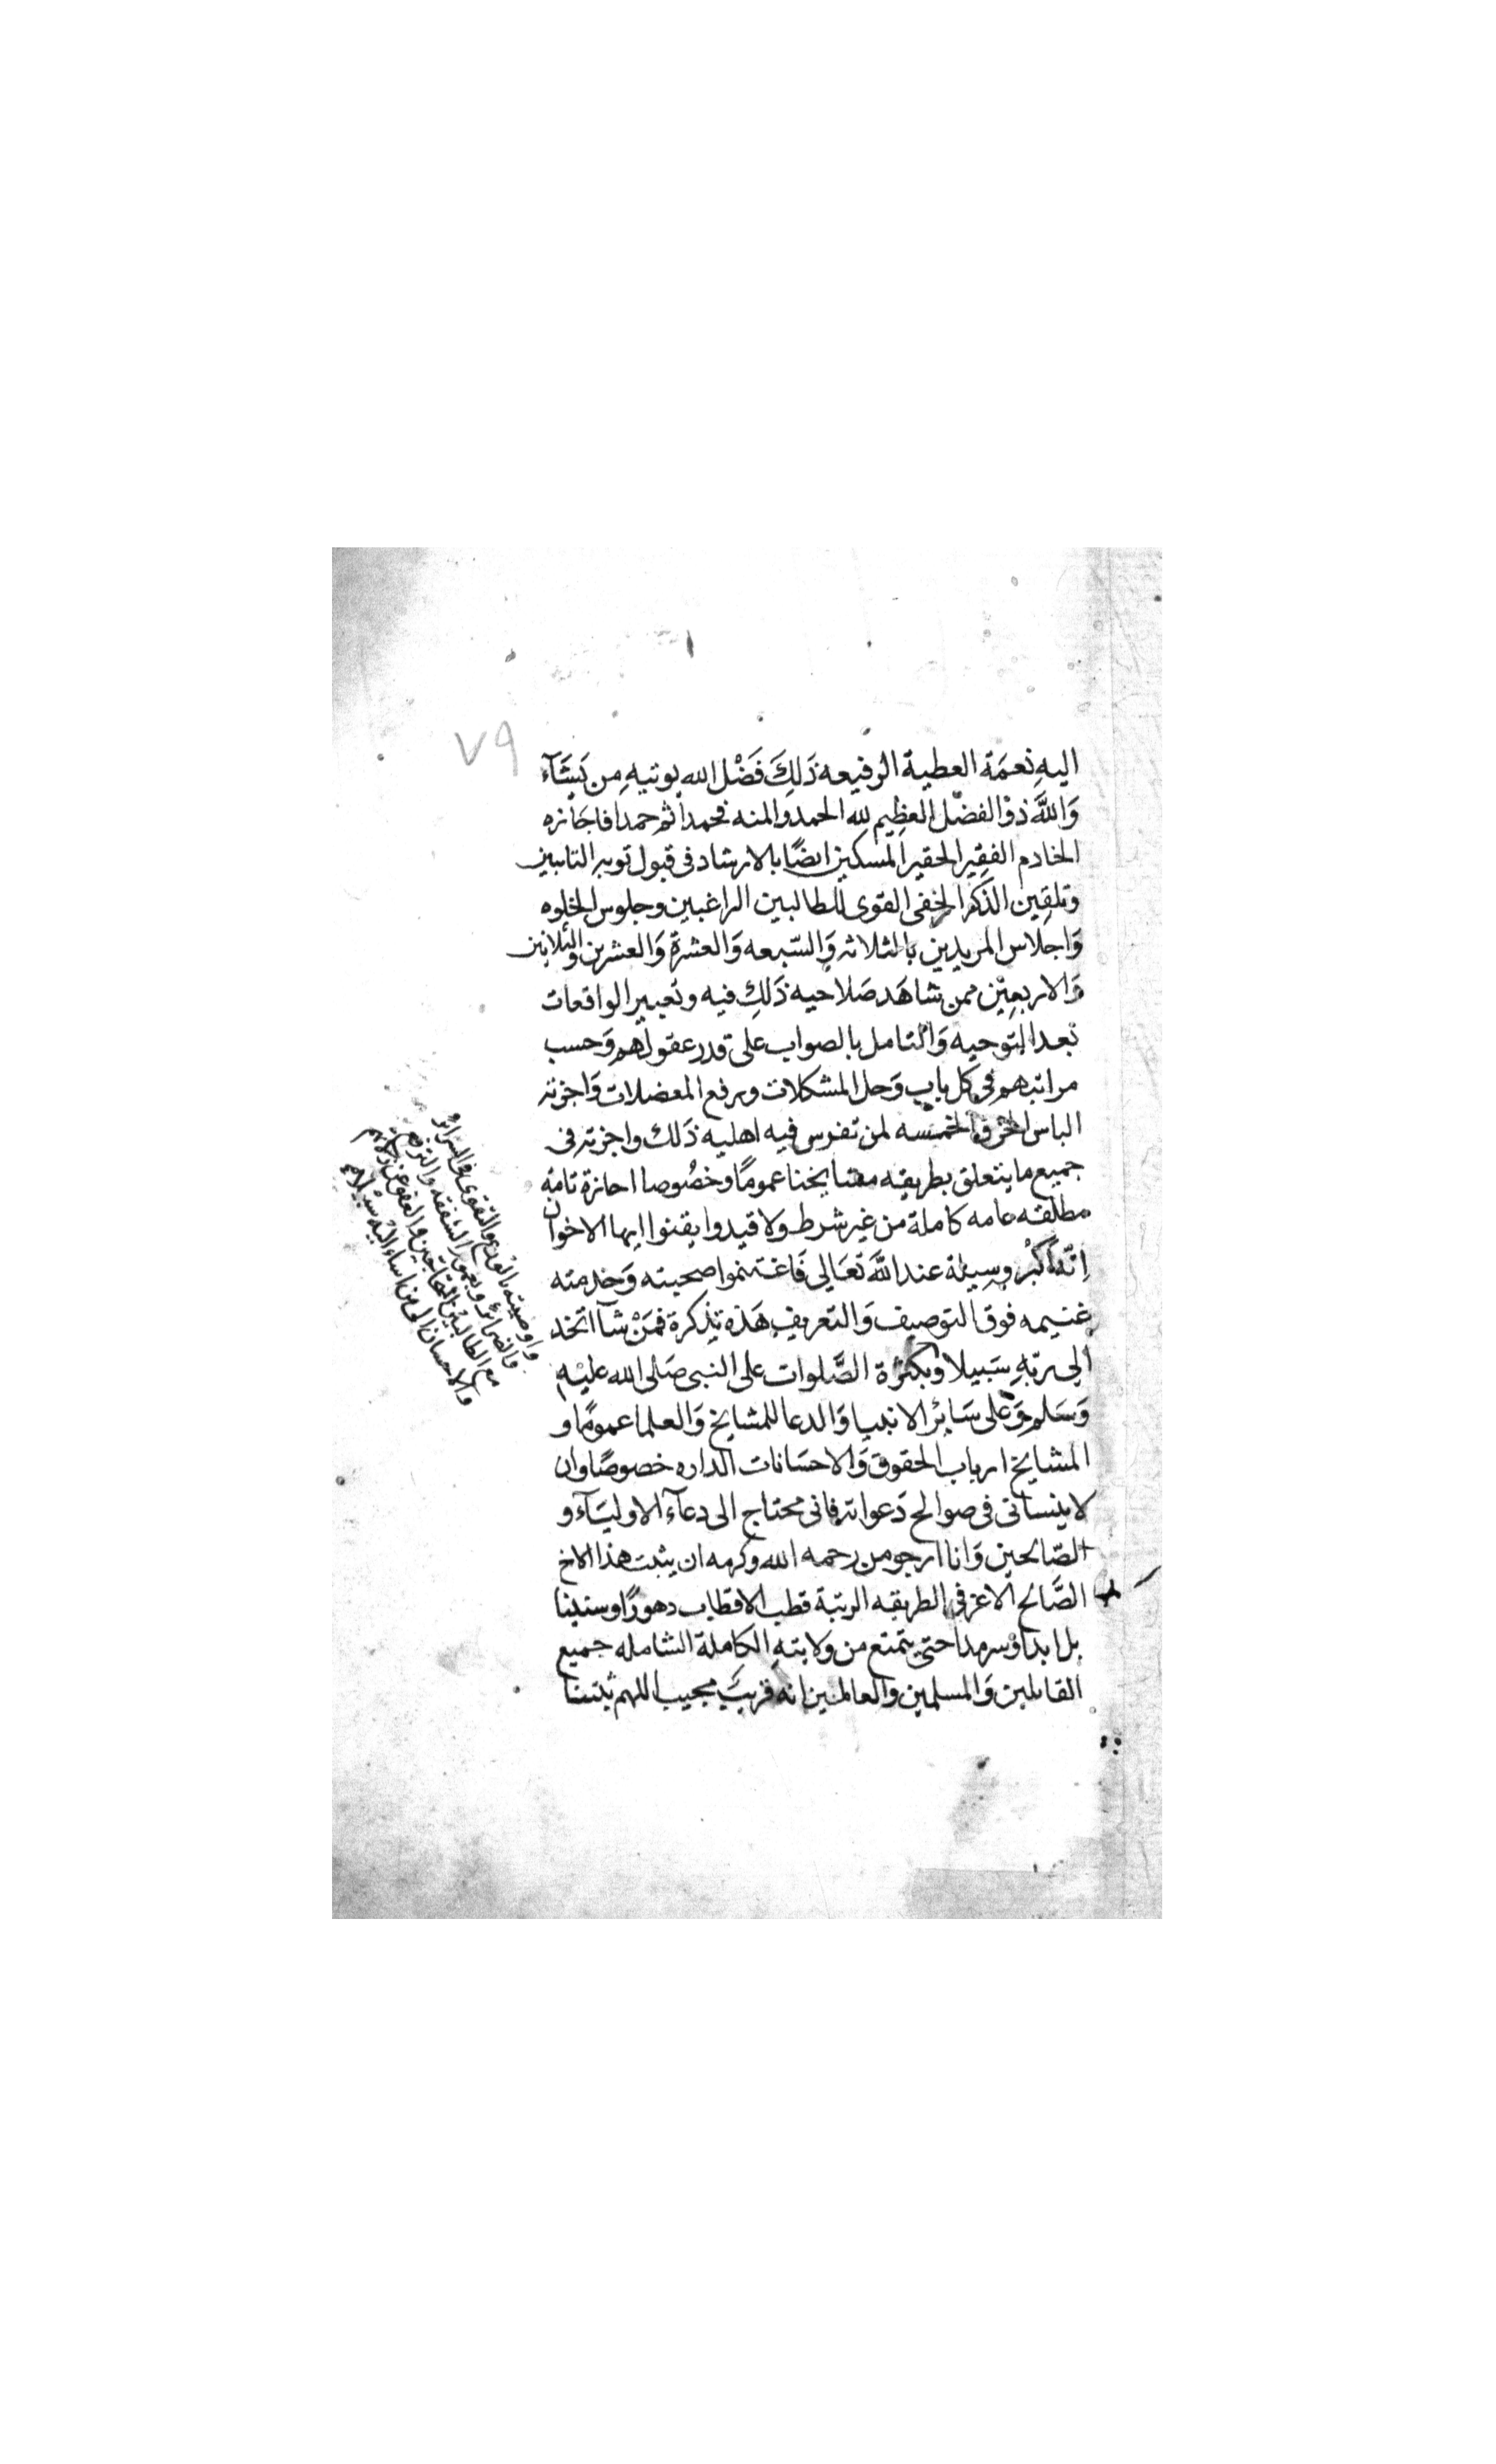 ٧٩
اليهِ نعمَة العطية الرفيعه ذَلِكَ فَضْل الله يوتيهِ من يَشَآء
وَاللَّه ذو الفضْل العظِيم لله الحمد والمنه فحمداً ثم حمدا فاجَازه
الخادم الفقِير الحقير المسكين ايضًا بالارشاد فى قبول توبه التايبين
وتلقِين الذكر الخفى القوى للطالبين الراغبين وجلوس الخلوه
وَاجلاس المريدين بالثلاثه وَالسّبعه وَالعشرة وَالعشرين والثلاثين
وَالاربعِيْن ممن شاهَد صَلاحيه ذَلِك فيه وتعبير الواقعات
بعد التوجيه وَالتامل بالصواب على قدر عقولهم وَحسب
مراتبهم فى كل باب وَحل المشكلات ورفع المعضلات وَاجزته
الباس الخرق الخمسه لمن تفرس فيه اهليه ذَلك واجزته فى
جميع ما يتعلق بطريقه مشايخنا عمومًا وخصُوصا اجازة تامّة
مطلقه عامه كاملة من غير شرط ولا قيد وايقنوا ايها الاخوان
اِنّه اكبْر وسِيلة عند اللَّه تعَالى فَاغتنموا صحبته وَخدمته
غنيمه فوق التوصيف وَالتعريف هَذه تذكرة فمَنْ شآ اتخذ
الى ربّهِ سَبيلا وبكثرة الصَّلوات على النبى صَلى الله عليْه
وَسَلم وَعلى سَايرْ الانبيا وَالدعا للمشايخ وَالعلما عمومًا و
المشايخ ارباب الحقوق وَالاحسَانات الداره خصوصًا وان
لا ينسانى فى صوالح دَعواته فانى محتاج الى دعآء الاوليَآء و
الصّالحين وَانا ارجو من رحمه الله وكرمه ان يثبت هذا الاخ
الصَّالح الاعز فى الطريقه الرتبة قطب الاقطاب دهورًا وسنينا
بل ابدا وْسرمدا حتى يتمتع من ولايتهِ الكاملة الشامله جميع
القابلين وَالمسلمين والعالمين انه قريبٌ مجيب اللهم ثبتنا
واوصيته بالورع والتقوى فى السرائر
والضرائر وبعموم الشفقه والترحم
مع الطالبين المحتاجين والعفو عن زلاتهم
والاحسان الى من اساء اليه